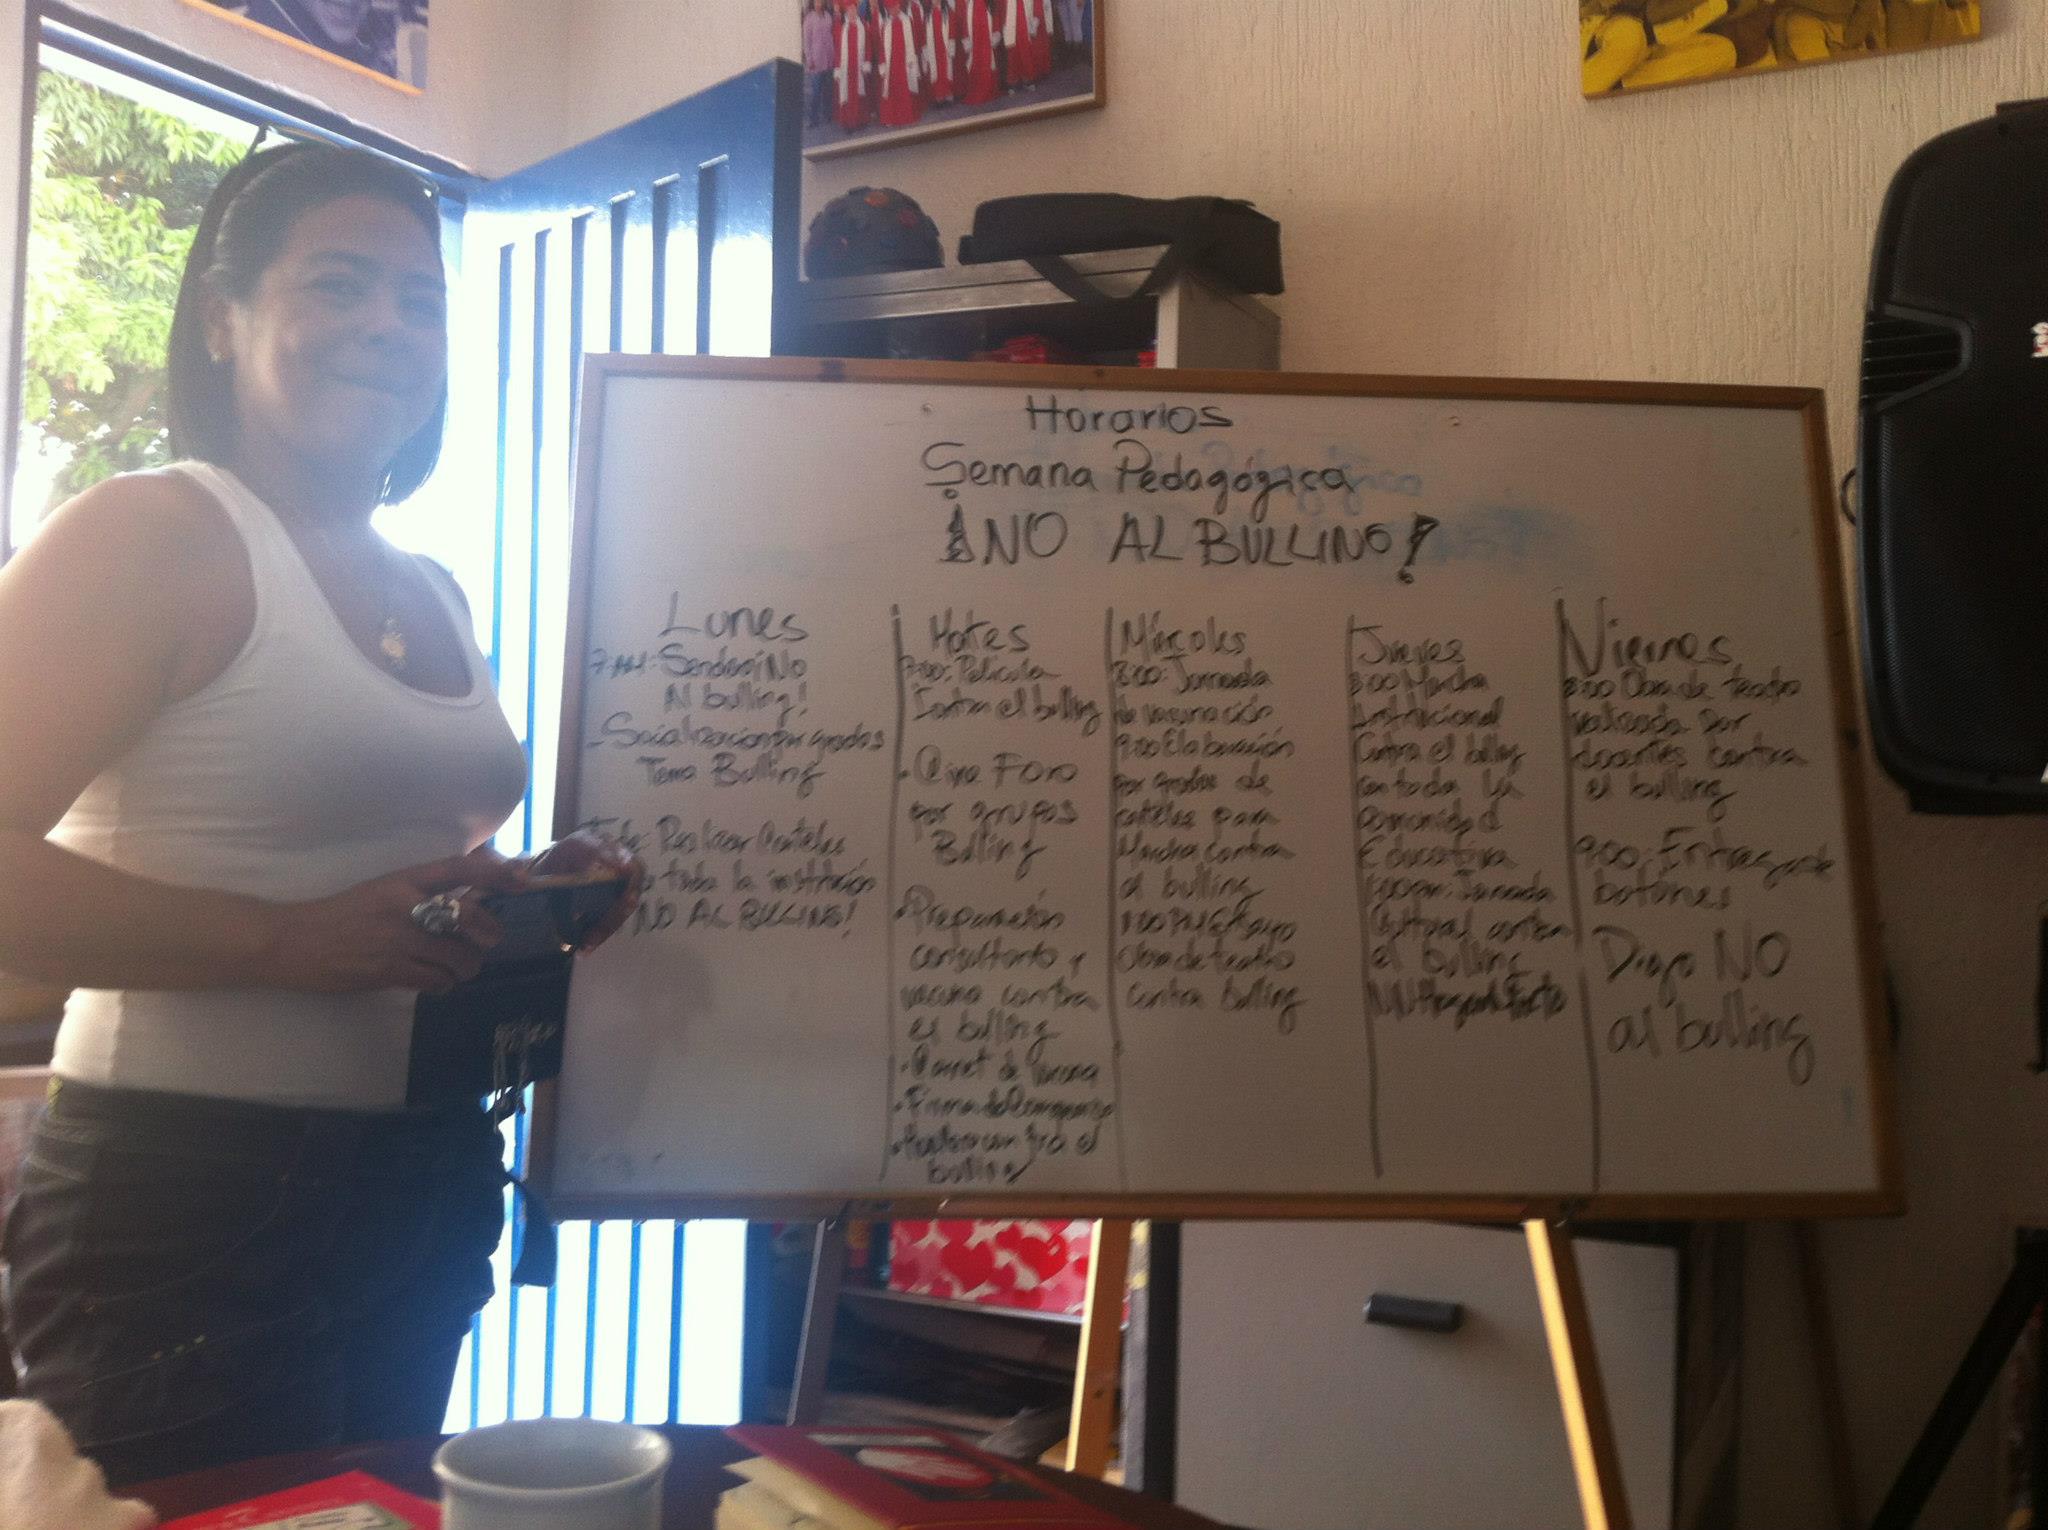 Horarios
Semana Pedagógica
¡NO AL BULLING!
Lunes
7 AM: No
Al bulling!
- Socializacion por grados
Tema Bulling
Realizar Carteles
toda la institución
NO AL BULLING!
Martes
7:00: Película
Contra el bulling
• Cine Foro
por grupos
Bulling
• Preparación
consultorio y
vacuna contra
el bulling
• Carnet de vacuna
• Firma de
contra el
bulling
Miércoles
8:00: Jornada
de vacunación
9:00 Elaboración
por grados de
carteles para
Marcha contra
el bulling
Ensayo
Obra de teatro
Contra bulling
Jueves
8:00 Marcha
Institucional
Contra el bulling
con toda la
comunidad
Educativa
Jornada
Cultural contra
el bulling
Viernes
8:00 Obra de teatro
realizada por
docentes contra
el bulling
9:00: Entrega de
botones
Digo NO
al bulling